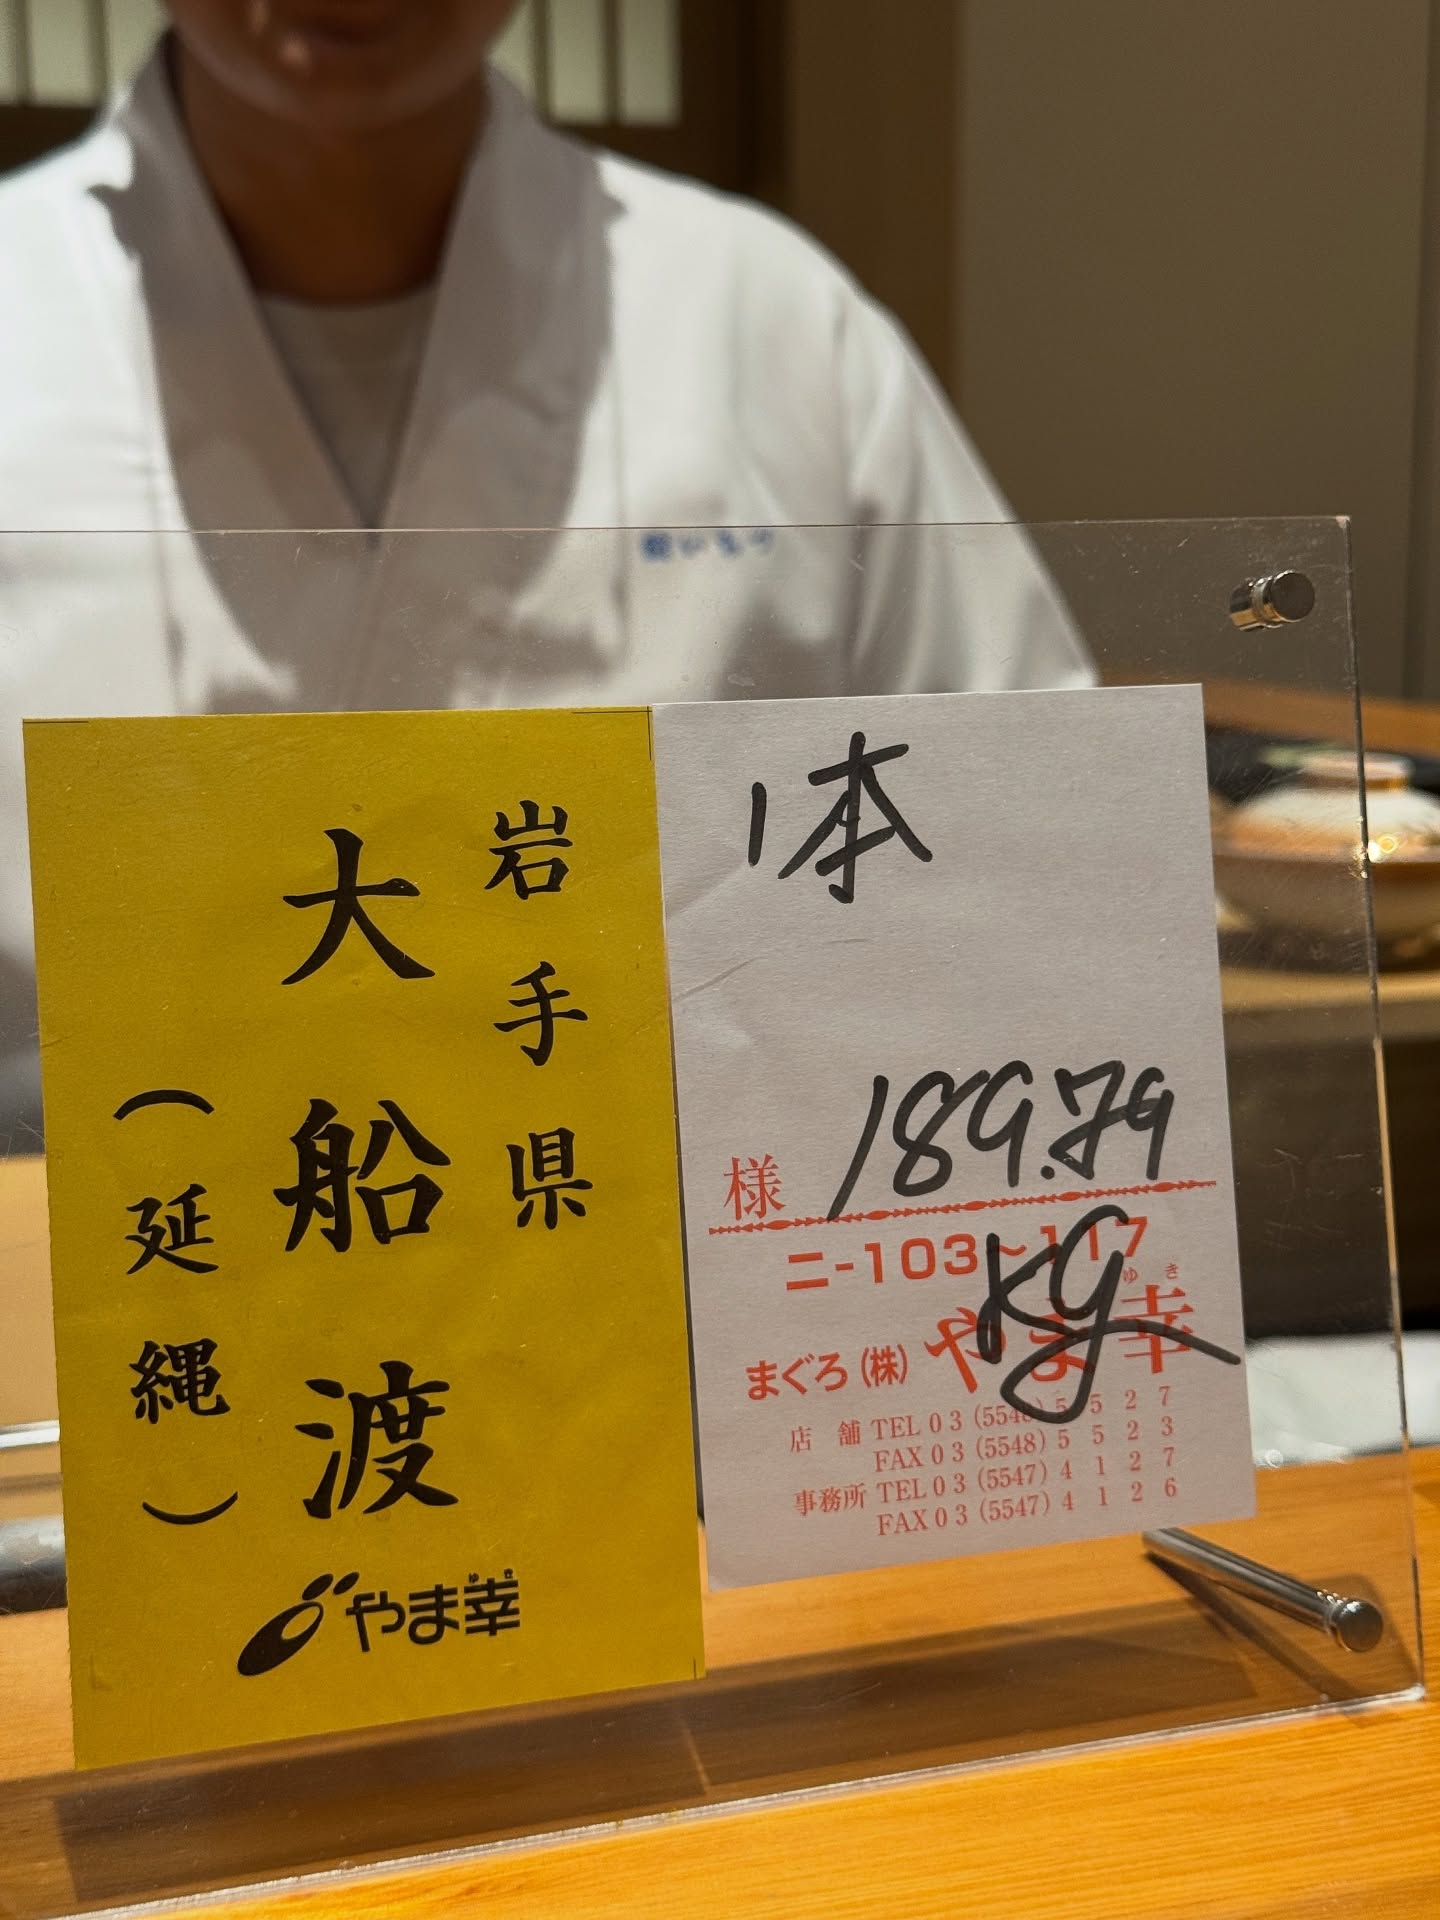 岩手県
大船渡
（延縄）
やま幸
ゆき
1本
189.79
KG
様
ニ-103～117
ゆき
まぐろ（株）やま幸
店舗 TEL 03 (5548) 5527
FAX 03 (5548) 5523
事務所 TEL 03 (5547) 4127
FAX 03 (5547) 4126